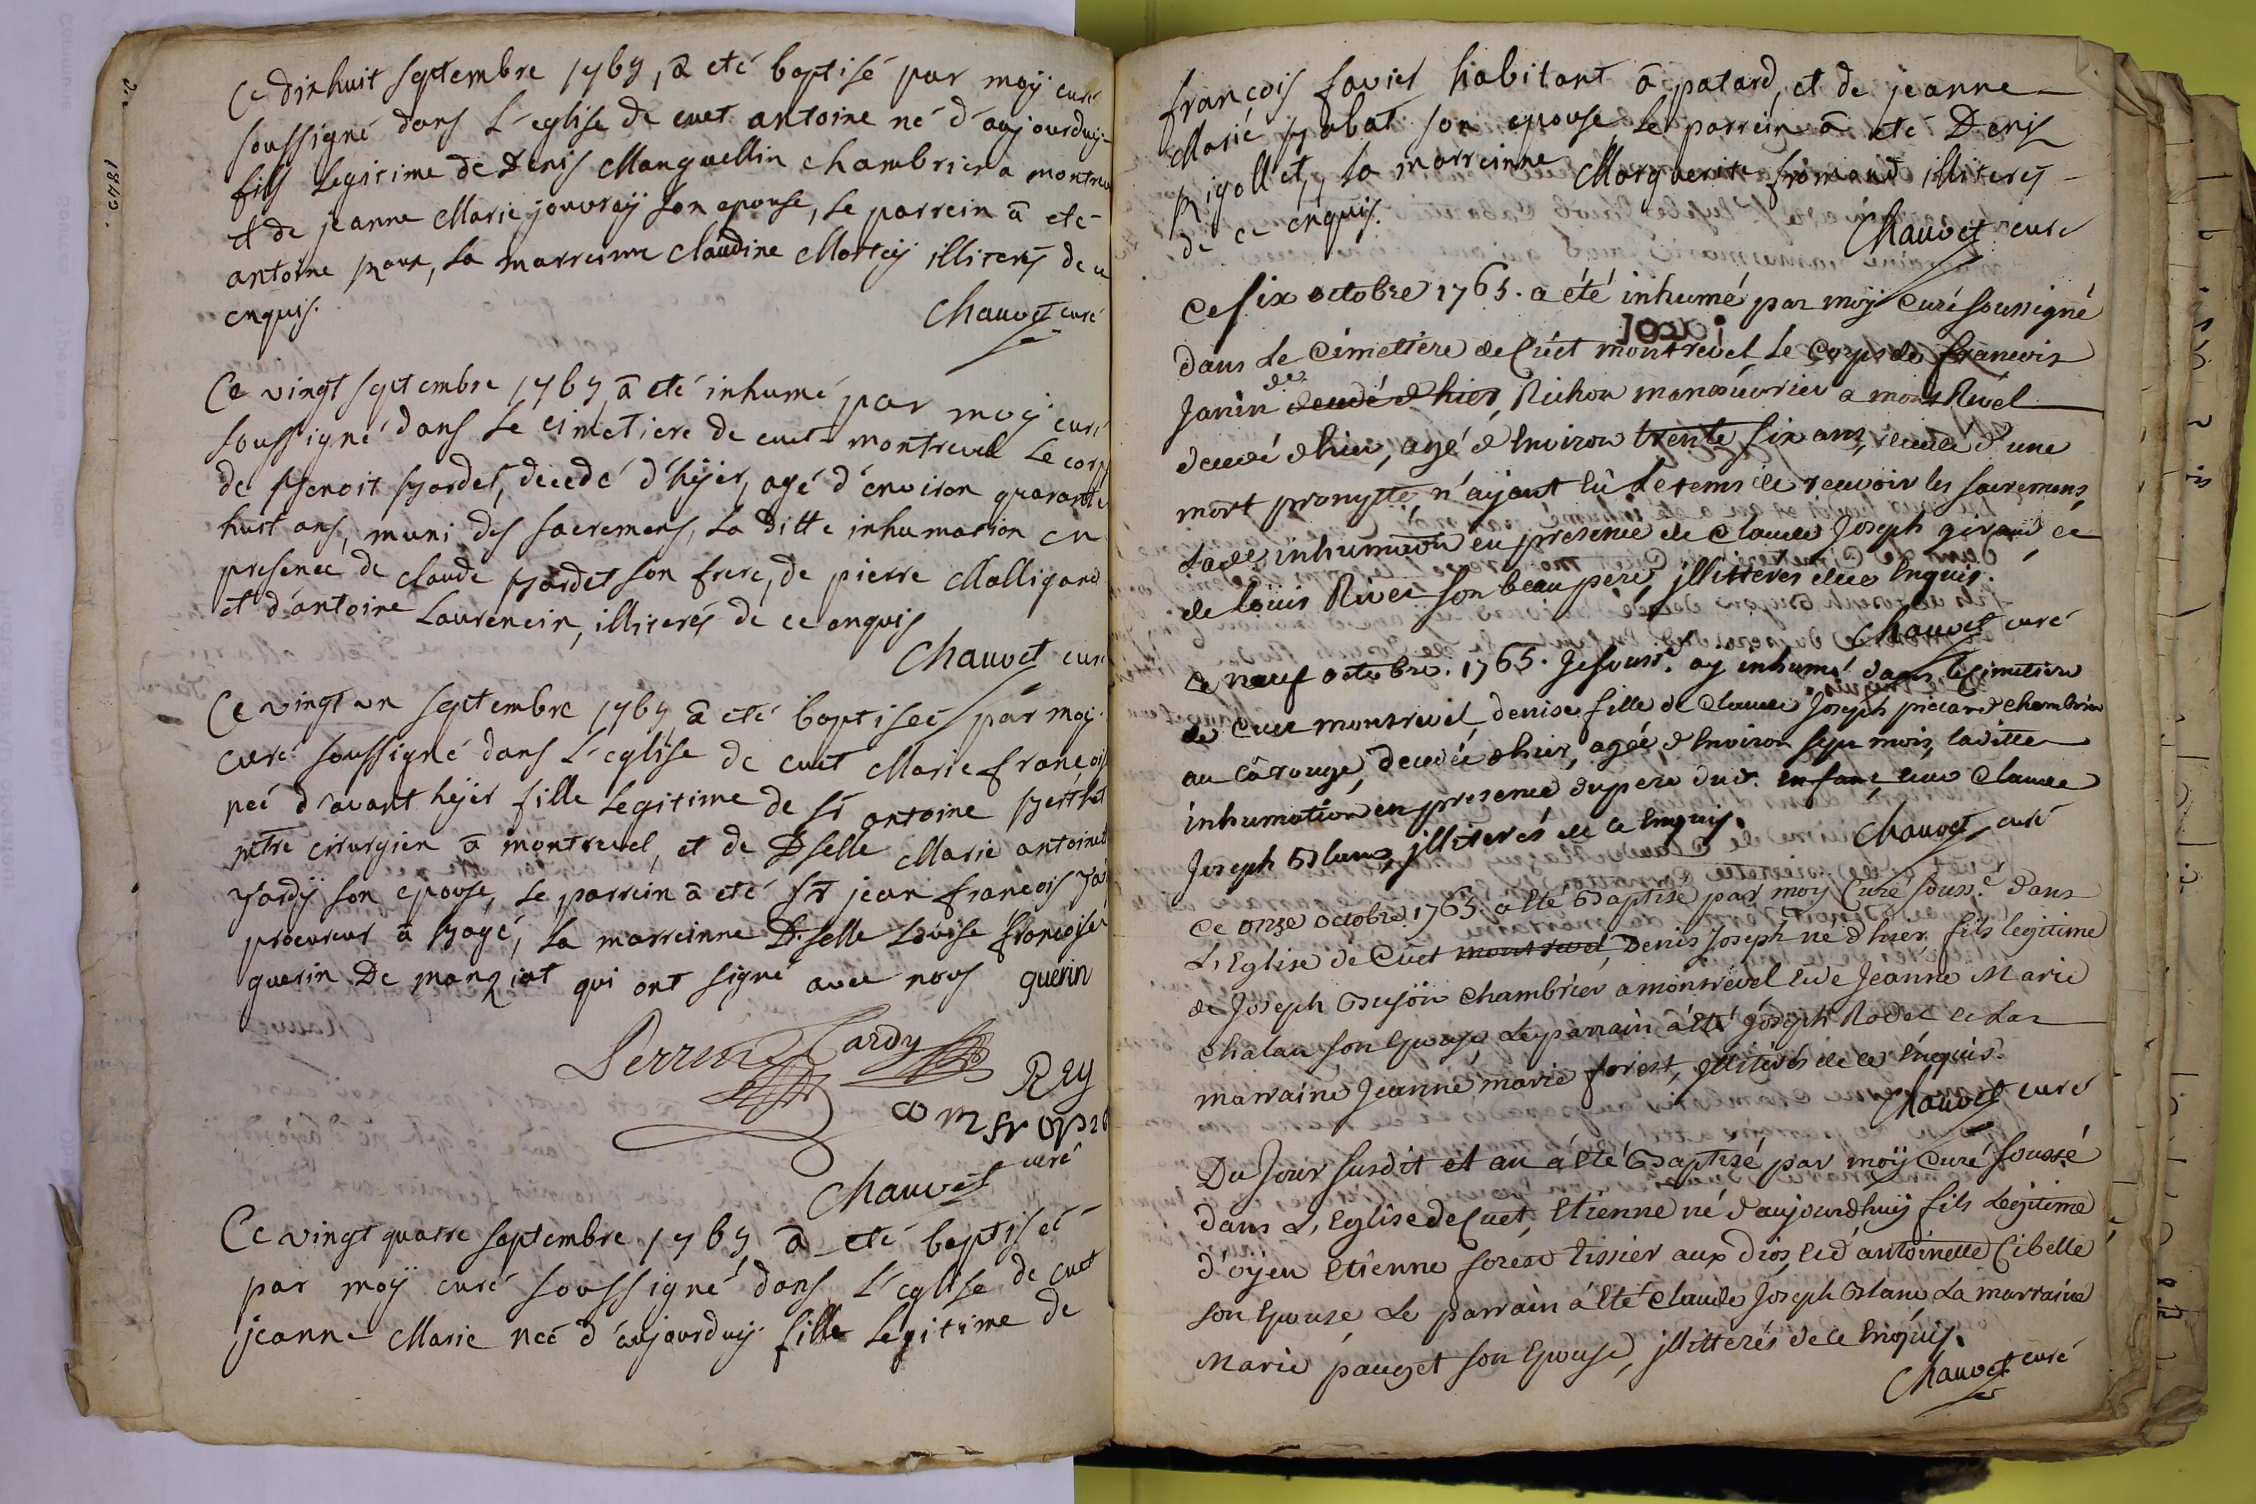 Ce dix huit septembre 1765, a eté baptisé par moÿ curé
soussigné dans L'eglise de cuet antoine né d'aujourduy
fils Legitime de Denis Manguellin chambrier a montrev
et de jeanne Marie jouvraÿ son epouse, Le parrein a eté
antoine Roux, La marreinne Claudine Morteÿ illiterés de ce
enquis.
Chauvet curé
Ce vingt septembre 1765 a eté inhumé par moÿ curé
soussigné dans Le cimetiere de cuet montrevel Le corp
de Benoit Bordet, decedé d'hÿer, agé d'environ quarante
huit ans, muni des sacremens, La ditte inhumation en
presence de claude Bordet son frere, de pierre Malligand
et d'antoine Laurencin, illiterés de ce enquis
Chauvet curé
Ce vingt un septembre 1765 a eté baptiseé par moÿ
curé soussigné dans L'eglise de cuet Marie françois
neé d'avant hÿer fille Legitime de Sr antoine Berthet
mtre cirurgien a montrevel, et de Dselle Marie antoinet
Jardÿ son epouse, Le parrein a eté Sr jean françois Jar
procureur a Bagé, La marreinne Dselle Louise françoise
guerin De manziat qui ont signé avec nous guerin
Perrin Jardy
Rey
com fropi
Chauvet curé
Ce vingt quatre septembre 1765 a eté baptiseé
par moÿ curé soussigné dans L'eglise de cuet
jeanne Marie neé d'aujourduy fille Legitime de
françois favier habitant a patard, et de jeanne
Marie Rabat son epouse Le parrein a eté Denis
Rigollet, La marreinne Marguerite fromand illiterés
de ce enquis.
Chauvet curé
Ce six octobre 1765. a été inhumé par moÿ Curé soussigné
dans Le Cimettiere de Cuet montrevel Le Corps de francois
Janin de decedé d'hier, Richon manoeuvrier a montRevel
decedé d'hier, agé d'Environ trente six ans, decedé d'une
mort prompte n'aÿant eû Le tems de recevoir les sacremens,
Lade inhumaôn en presence de Claude Joseph girand et
de loüis River son beau pere, jllitteres de ce Enquis.
Chauvet curé
Ce neuf octobre. 1765. Je souss.é aÿ inhumé dans le Cimetiere
de Cuet montrevel, denise fille de Claude Joseph picard chambrier
au Carouge, decedée d'hier, agée d'Environ sept mois, laditte
inhumation en presence du pere du d. enfant, et de Claude
Joseph Blanc, jlliterés de ce Enquis.
Chauvet curé
Ce onze octobre 1765. a Eté Baptisé par moÿ Curé souss.é dans
L'Eglise de Cuet montrevel, Denis Joseph né d'hier fils légitime
de Joseph Bujon chambrier a montrevel et de Jeanne Marie
Chalan son Epouse Le parrain a Eté Joseph Rodet et La
marraine Jeanne marie forest, jlliterés de ce Enquis.
Chauvet curé
Du Jour susdit et an a Eté Baptisé par moÿ Curé soussé
dans L'Eglise de Cuet, Etienne né d'aujourdhuÿ fils Légitime
d'oÿen Etienne forest tissier aux dios, et d'antoinette Cibelle
son Epouse Le parrain a Eté Claude Joseph Blanc La marraine
Marie pauget son Epouse, jllitterés de ce Enquis.
Chauvet curé